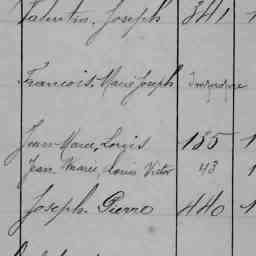 Valentin, Joseph 341 1
François, Marie Joseph
Jean Marie, Louis 185 1
Jean Marie, Louis Victor 43 1
Joseph Pierre 440 1